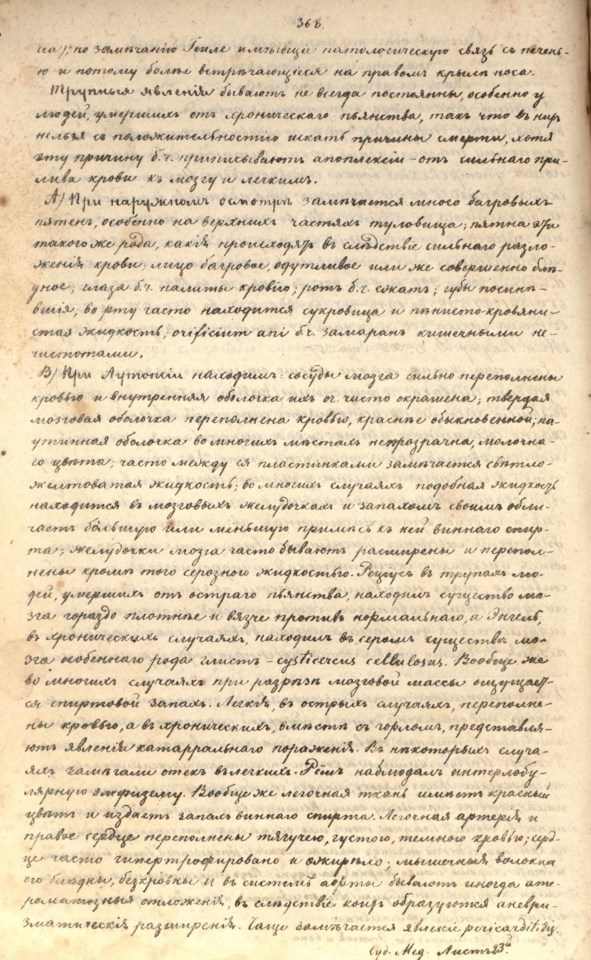 368.
са), по замѣчанію Генле имѣющія патологическую связь съ печень-
ю и потому болѣе встрѣчающіеся на правомъ крылѣ носа.
Трупныя явленія бываютъ не всегда постоянны, особенно у
людей, умершихъ отъ хроническаго пьянства, такъ что въ нихъ
нельзя съ положительностію искать причины смерти, хотя
эту причину б.ч. приписываютъ апоплексіи – отъ сильнаго при-
лива крови къ мозгу и легкимъ.
А) При наружномъ осмотрѣ замѣчается много багровыхъ
пятенъ, особенно на верхнихъ частяхъ туловища; пятна эти
такого же рода, какія происходятъ въ слѣдствіе сильнаго разло-
женія крови; лицо багровое, одутливое или же совершенно блѣ-
дное; глаза б.ч. налиты кровію; ротъ б.ч. сжатъ; губы посинѣ-
вшія; во рту часто находится сукровица и пѣнисто-кровяни-
стая жидкость; orificium ani б.ч. замаранъ кишечными не-
чистотами.
В) При Аутопсіи находимъ: сосуды мозга сильно переполнены
кровью и внутренняя оболочка ихъ оч. чисто окрашена; твердая
мозговая оболочка переполнена кровью, краснѣе обыкновенной; па-
утинная оболочка во многихъ мѣстахъ непрозрачна, молочна-
го цвѣта; часто между ея пластинками замѣчается свѣтло-
желтоватая жидкость; во многихъ случаяхъ подобная жидкость
находится въ мозговыхъ желудочкахъ и запахомъ своимъ обли-
чаетъ бо́льшую или меньшую примѣсь къ ней виннаго спир-
та; желудочки мозга часто бываютъ расширены и перепол-
нены кромѣ того серозною жидкостью. Рециусъ въ трупахъ лю-
дей, умершихъ отъ остраго пьянства, находилъ существо мо-
зга гораздо плотнѣе и вязче противъ нормальнаго, а Энгель,
въ хроническихъ случаяхъ, находилъ въ серомъ существѣ мо-
зга особеннаго рода глистъ – cysticercus cellulosus. Вообще же
во многихъ случаяхъ при разрѣзѣ мозговой массы ощущает-
ся спиртовой запахъ. Легкія, въ острыхъ случаяхъ, переполне-
ны кровью, а въ хроническихъ, вмѣстѣ съ горломъ, представля-
ютъ явленія катарральнаго пораженія. Въ нѣкоторыхъ случа-
яхъ замѣчали отекъ въ легкихъ. Рёмъ наблюдалъ интерлобу-
лярную эмфизему. Вообще же легочная ткань имѣетъ красный
цвѣтъ и издаетъ запахъ виннаго спирта. Легочная артерія и
правое сердце переполнены тягучею, густою, темною кровью; серд-
це часто гипертрофировано и ожирѣло; мышечныя волокна
его блѣдны, безкровны и въ системѣ аорты бываютъ иногда ате-
роматозныя отложенія, въ слѣдствіе коихъ образуются аневри-
зматическія расширенія. Чаще замѣчается явленіе pericarditidis.
Суд. Мед. Листъ 23ª.